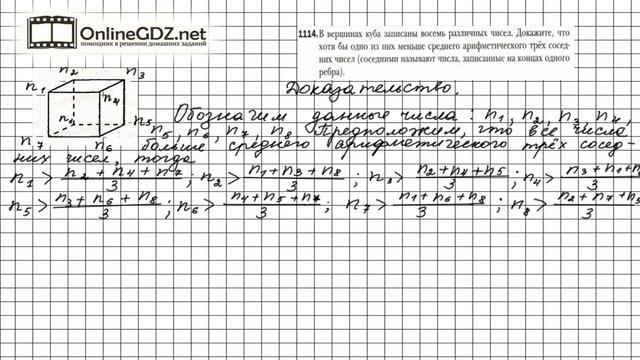 OnlineGDZ.net
помощник в решении домашних заданий
1114. В вершинах куба записаны восемь различных чисел. Докажите, что
хотя бы одно из них меньше среднего арифметического трёх сосед-
них чисел (соседними называют числа, записанные на концах одного
ребра).
n2
n3
n1
n4
n5
n7
n6
Доказательство.
Обозначим данные числа: n1, n2, n3, n4,
n5, n6, n7, n8. Предположим, что все числа
больше среднего арифметического трёх сосед-
них чисел, тогда
n1 > (n2+n4+n7)/3; n2 > (n1+n3+n8)/3; n3 > (n2+n4+n5)/3; n4 > (n3+n1+n
n5 > (n3+n6+n8)/3; n6 > (n4+n5+n7)/3; n7 > (n1+n6+n8)/3; n8 > (n2+n7+n5